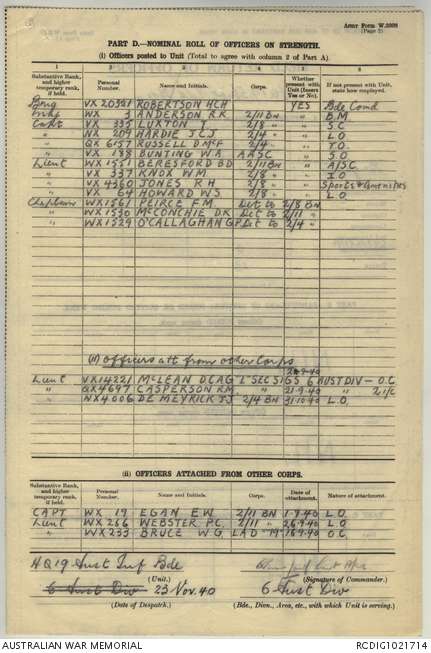 Army Form W.3008
(Page 3)
PART D.—NOMINAL ROLL OF OFFICERS ON STRENGTH.
(i) Officers posted to Unit (Total to agree with column 2 of Part A).
1 2 3 4 5 6
Substantive Rank, and higher temporary rank, if held. Personal Number. Name and Initials. Corps. Whether present with Unit (Insert Yes or No). If not present with Unit, state how employed.
Brig VX 20321 ROBERTSON HCH YES Bde Comd
WX 3 ANDERSON R.K 2/11 BN " B.M
Capt WX 335 LUXTON T 2/8 " " S.C
" VX 209 HARDIE J.C.J 2/4 " " L.O
" QX 6157 RUSSELL D McF 2/8 " " T.O.
" VX 188 BUNTING W.A AASC " S.O
Lieut WX 1551 BERESFORD BD 2/11 BN " A/SC
" VX 337 KNOX W M 2/8 " " I.O
" VX 4360 JONES R H 2/8 " "
" VX 64 HOWARD W S 2/8 " " L.O
Chaplain WX1561 PEIRCE F.M. Det to 2/8 BN
" WX 1530 McCONCHIE D.K Det to 2/11 "
" WX1529 O'CALLAGHAN G.P Det to 2/4 "
(ii) Officers att from other Corps
Lieut VX14221 McLEAN DCAG "L" SEC SIGS 6 AUST DIV — O.C
" QX4697 CASPERSON R.M " 21.9.40 " 2 i/c
" NX4006 DE MEYRICK J.J 2/4 BN 31.10.40 L.O.
(ii) OFFICERS ATTACHED FROM OTHER CORPS.
Substantive Rank, and higher temporary rank, if held. Personal Number. Name and Initials. Corps. Date of attachment. Nature of attachment.
CAPT WX 19 EGAN E.W. 2/11 BN 1.9.40 L.O.
Lieut WX 266 WEBSTER P.C. 2/11 " 26.9.40 L.O
" WX 255 BRUCE W G LAD "19" 18.9.40 O.C.
HQ 19 Aust Inf Bde
(Unit.) (Signature of Commander.)
6 Aust Div 23 Nov. 40 6 Aust Div
(Date of Despatch.) (Bde., Divn., Area, etc., with which Unit is serving.)
AUSTRALIAN WAR MEMORIAL RCDIG1021714